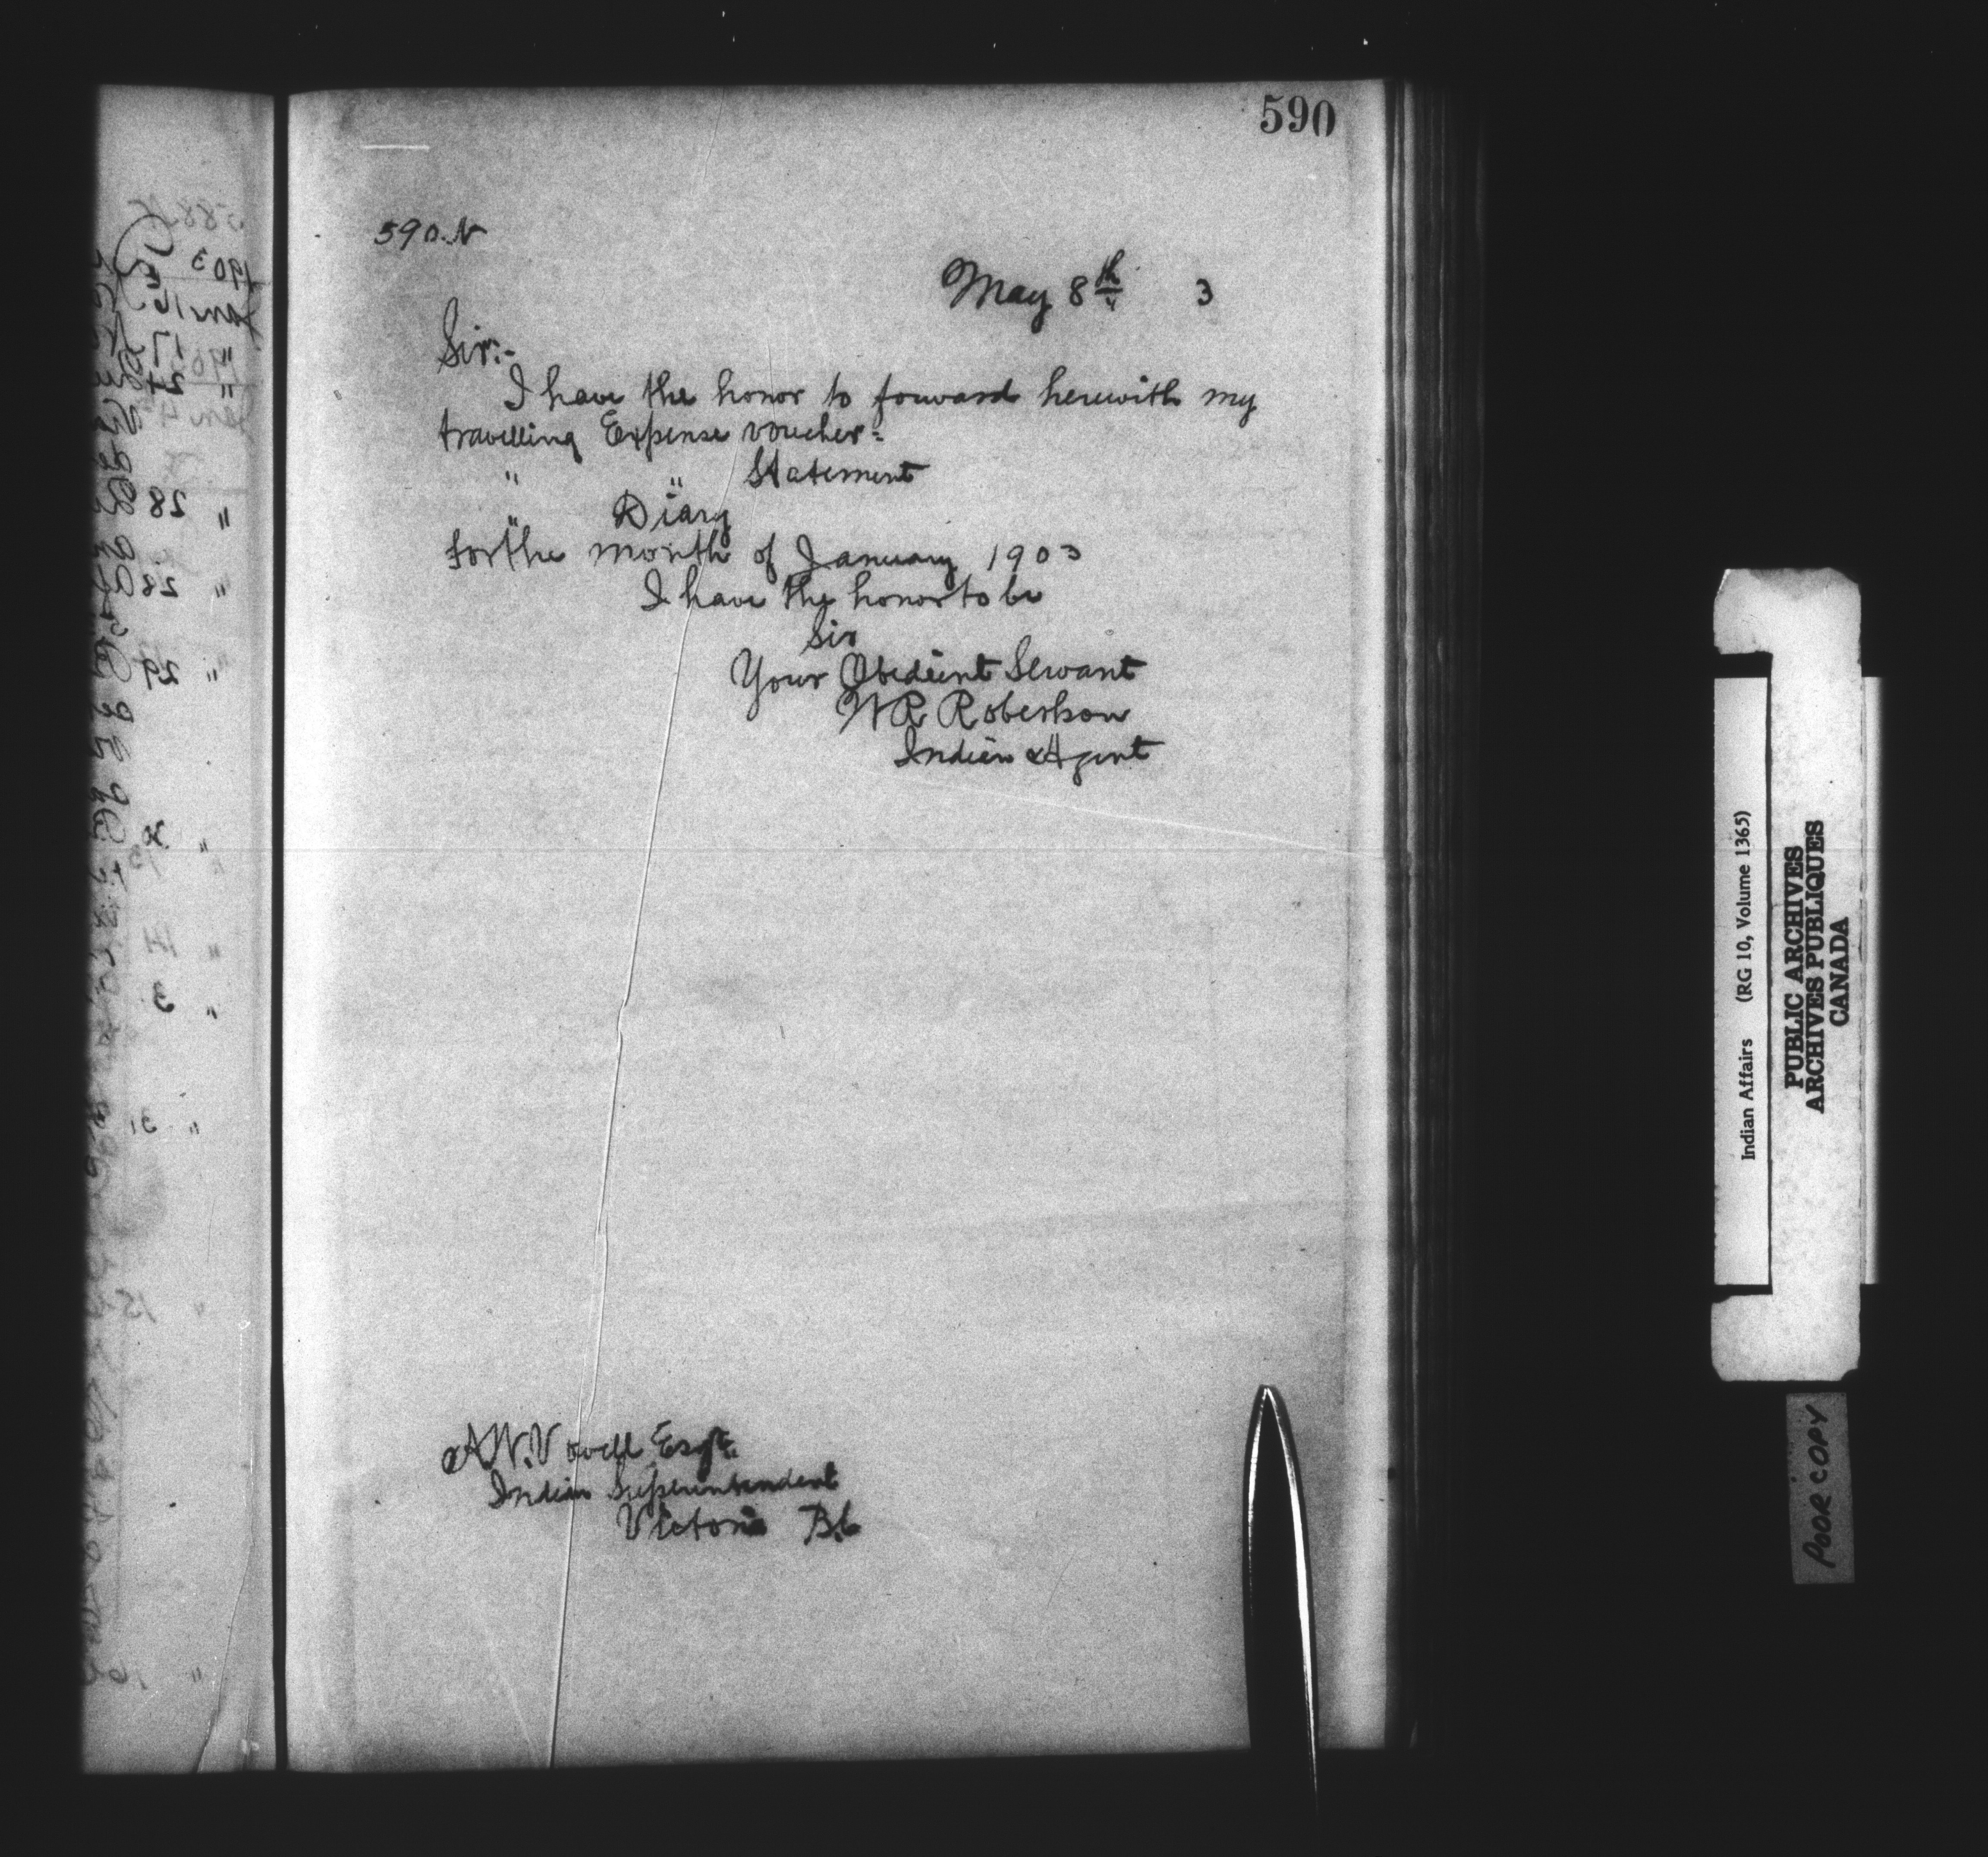 590
590.N
May 8th 3
Sir:-
I have the honor to forward herewith my
travelling Expense voucher:
" " Statement
" Diary
for the month of January 1903
I have the honor to be
Sir
Your Obedient Servant
W R Robertson
Indian Agent
A.W. Vowell Esqre.
Indian Superintendent
Victoria B.C
1903
Jan 16
" 17
" 24
" 28
" 28
" 29
" 14
" 3
" 31
" 15
Indian Affairs (RG 10, Volume 1365)
PUBLIC ARCHIVES
ARCHIVES PUBLIQUES
CANADA
POOR COPY